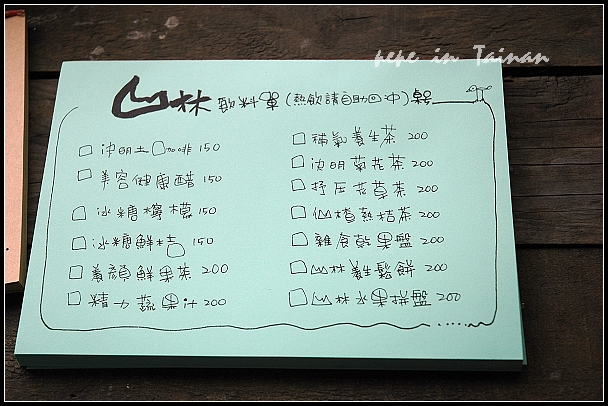 pepe in Tainan
山林飲料單(熱飲請自助回沖)喔
□沖明士□咖啡 150
□美容健康醋 150
□冰糖檸檬 150
□冰糖鮮桔 150
□養顏鮮果茶 200
□精力蔬果汁 200
□補氣養生茶 200
□決明菊花茶 200
□抒压花草茶 200
□仙楂熱桔茶 200
□雜食乾果盤 200
□山林養生鬆餅 200
□山林水果拼盤 200